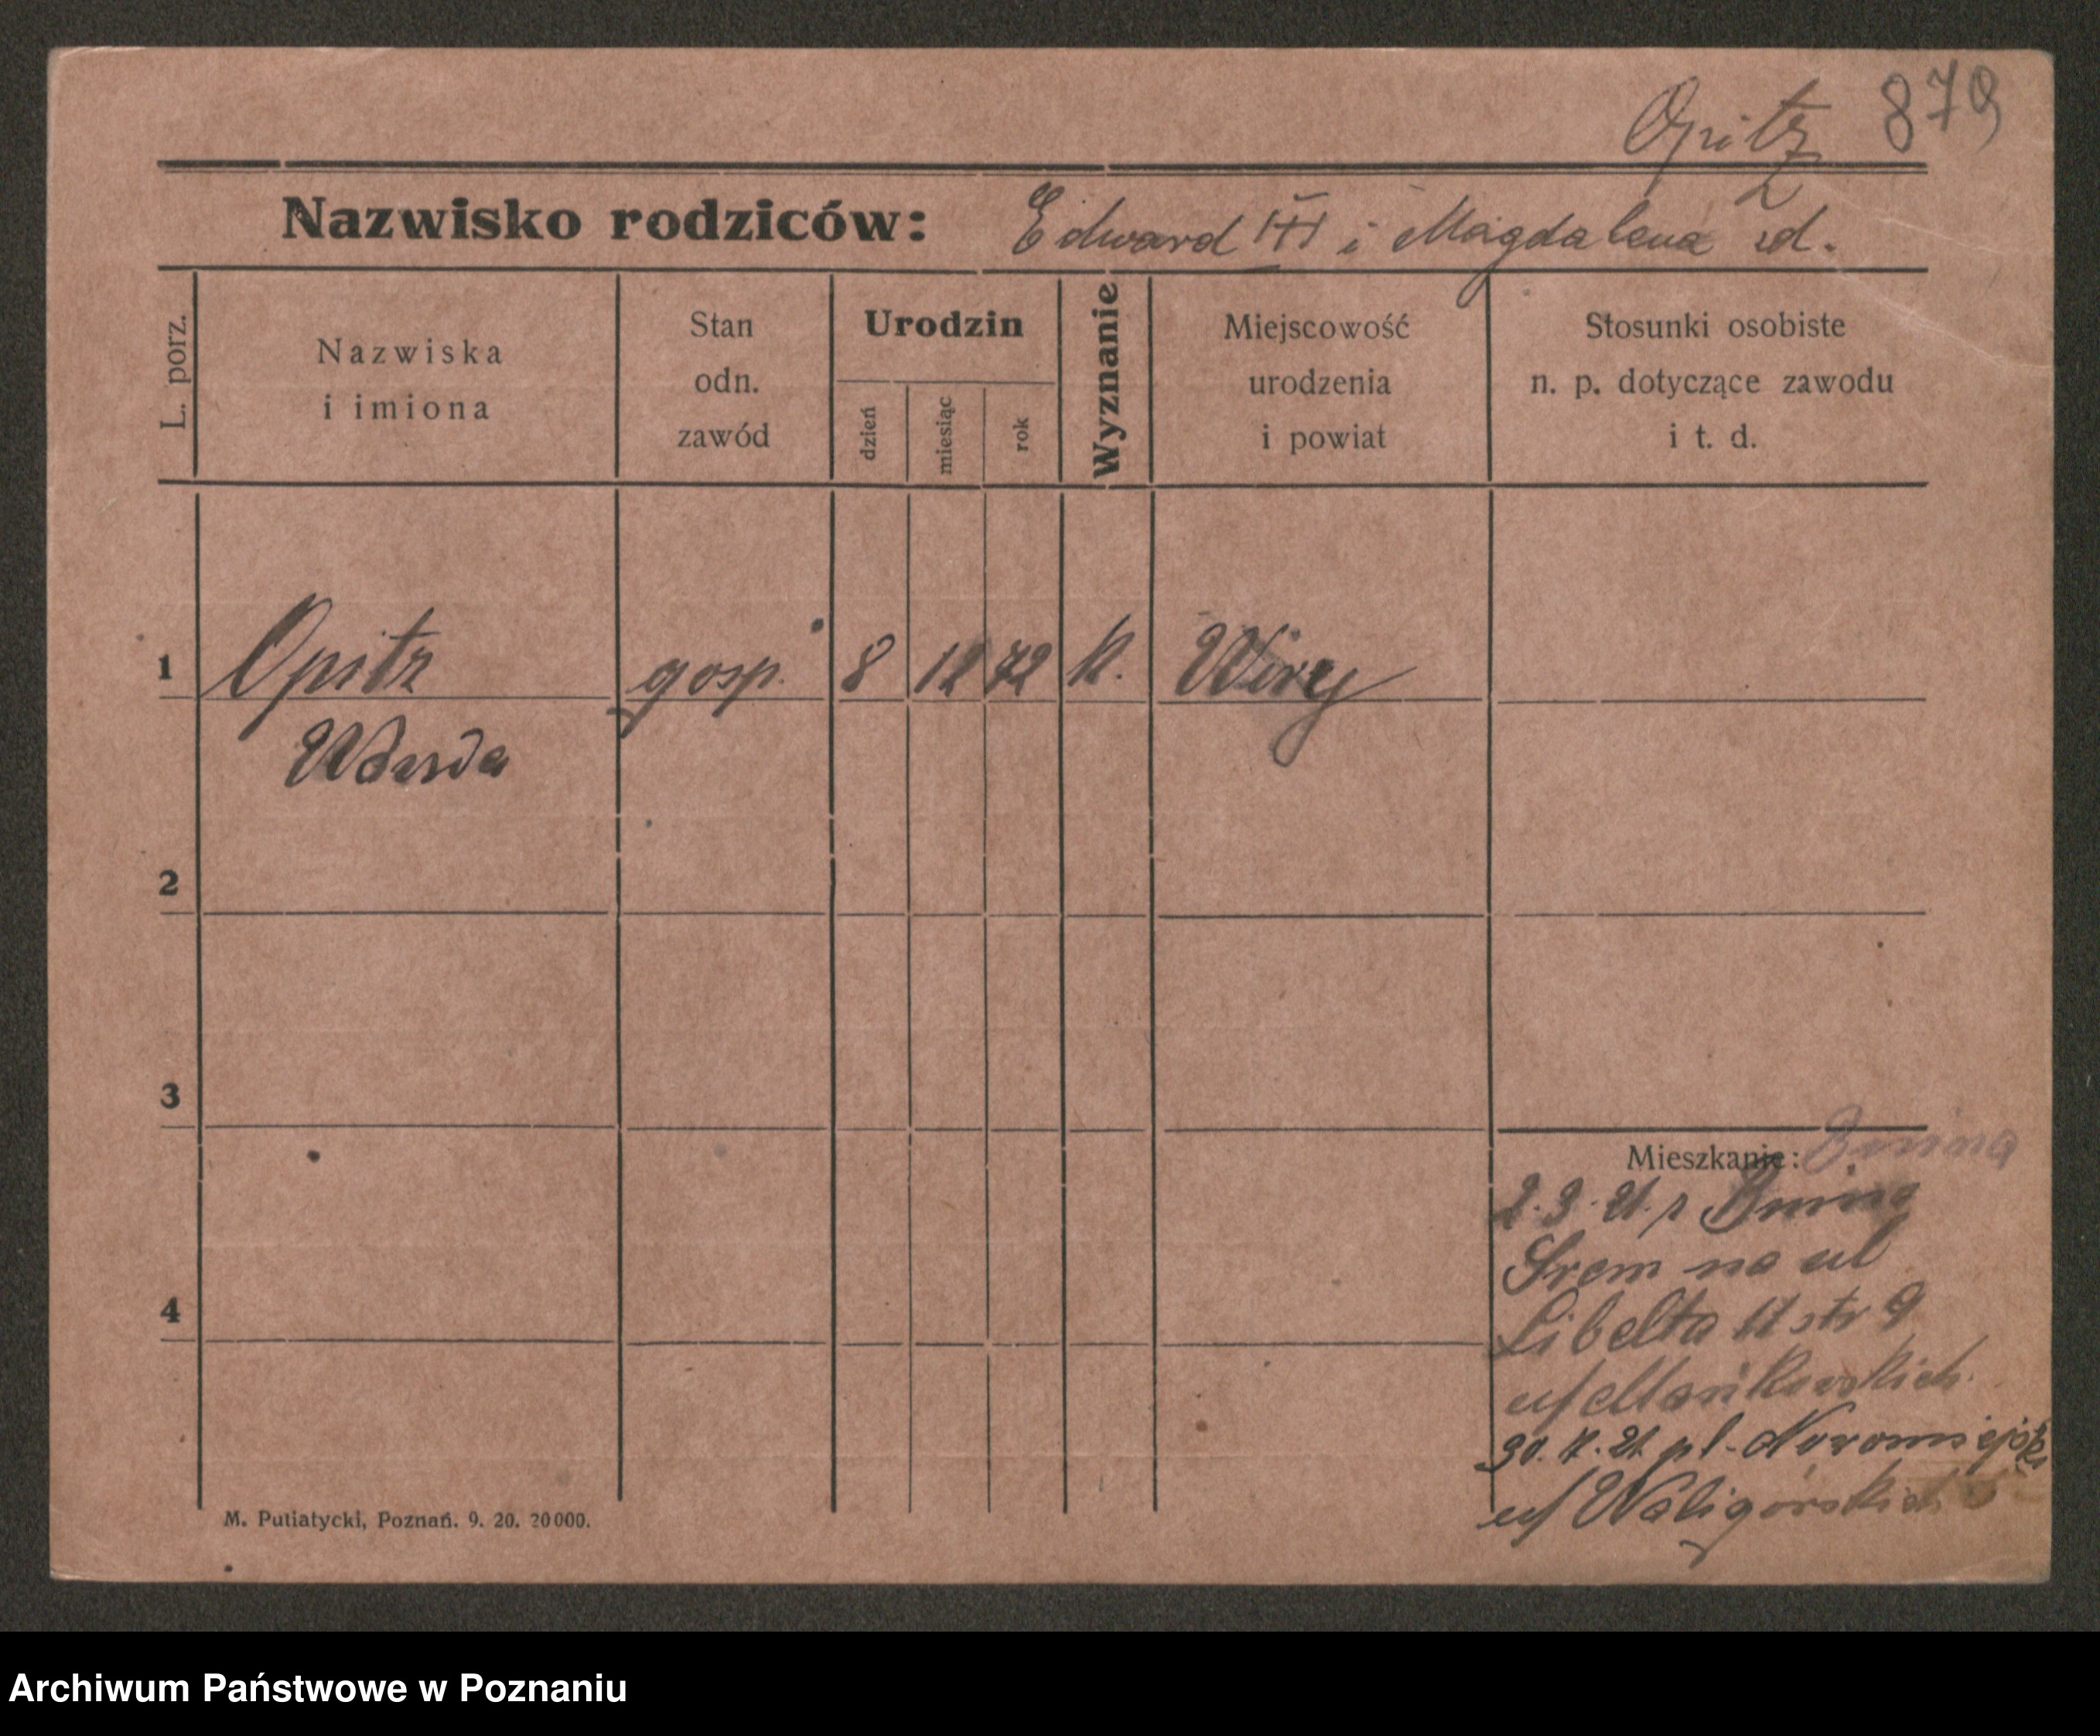 Opitz 879
Nazwisko rodziców: Edward III i Magdalena zd.
L. porz.
Nazwiska
i imiona
Stan
odn.
zawód
Urodzin
dzień
miesiąc
rok
Wyznanie
Miejscowość
urodzenia
i powiat
Stosunki osobiste
n. p. dotyczące zawodu
i t. d.
1 Opitz gosp. 8 12 72 k. Wiry
2
3
4
Mieszkanie: Bnina
2. 3. 21. z Bnina
Śrem na ul
Libelta 11 str 9
u/ Mańkowskich.
30. 7. 21. pl. Nowomiejski
u/ Waligórskich
M. Putiatycki, Poznań. 9. 20. 20000.
Archiwum Państwowe w Poznaniu